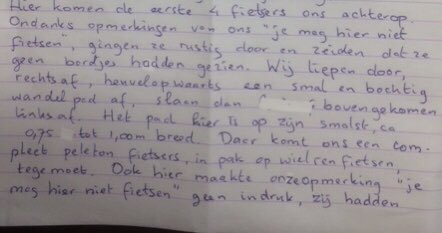 Hier komen de eerste 4 fietsers ons achterop.
Ondanks opmerkingen van ons "je mag hier niet
fietsen", gingen ze rustig door en zeiden dat ze
geen bordjes hadden gezien. Wij liepen door,
rechtsaf, heuvelopwaarts een smal en bochtig
wandelpad af, slaan dan bovengekomen
linksaf. Het pad hier is op zijn smalst, ca
0,75 tot 1,00m breed. Daar komt ons een com-
pleet peleton fietsers, in pak op wielrenfietsen,
tegemoet. Ook hier maakte onze opmerking "je
mag hier niet fietsen" geen indruk, zij hadden